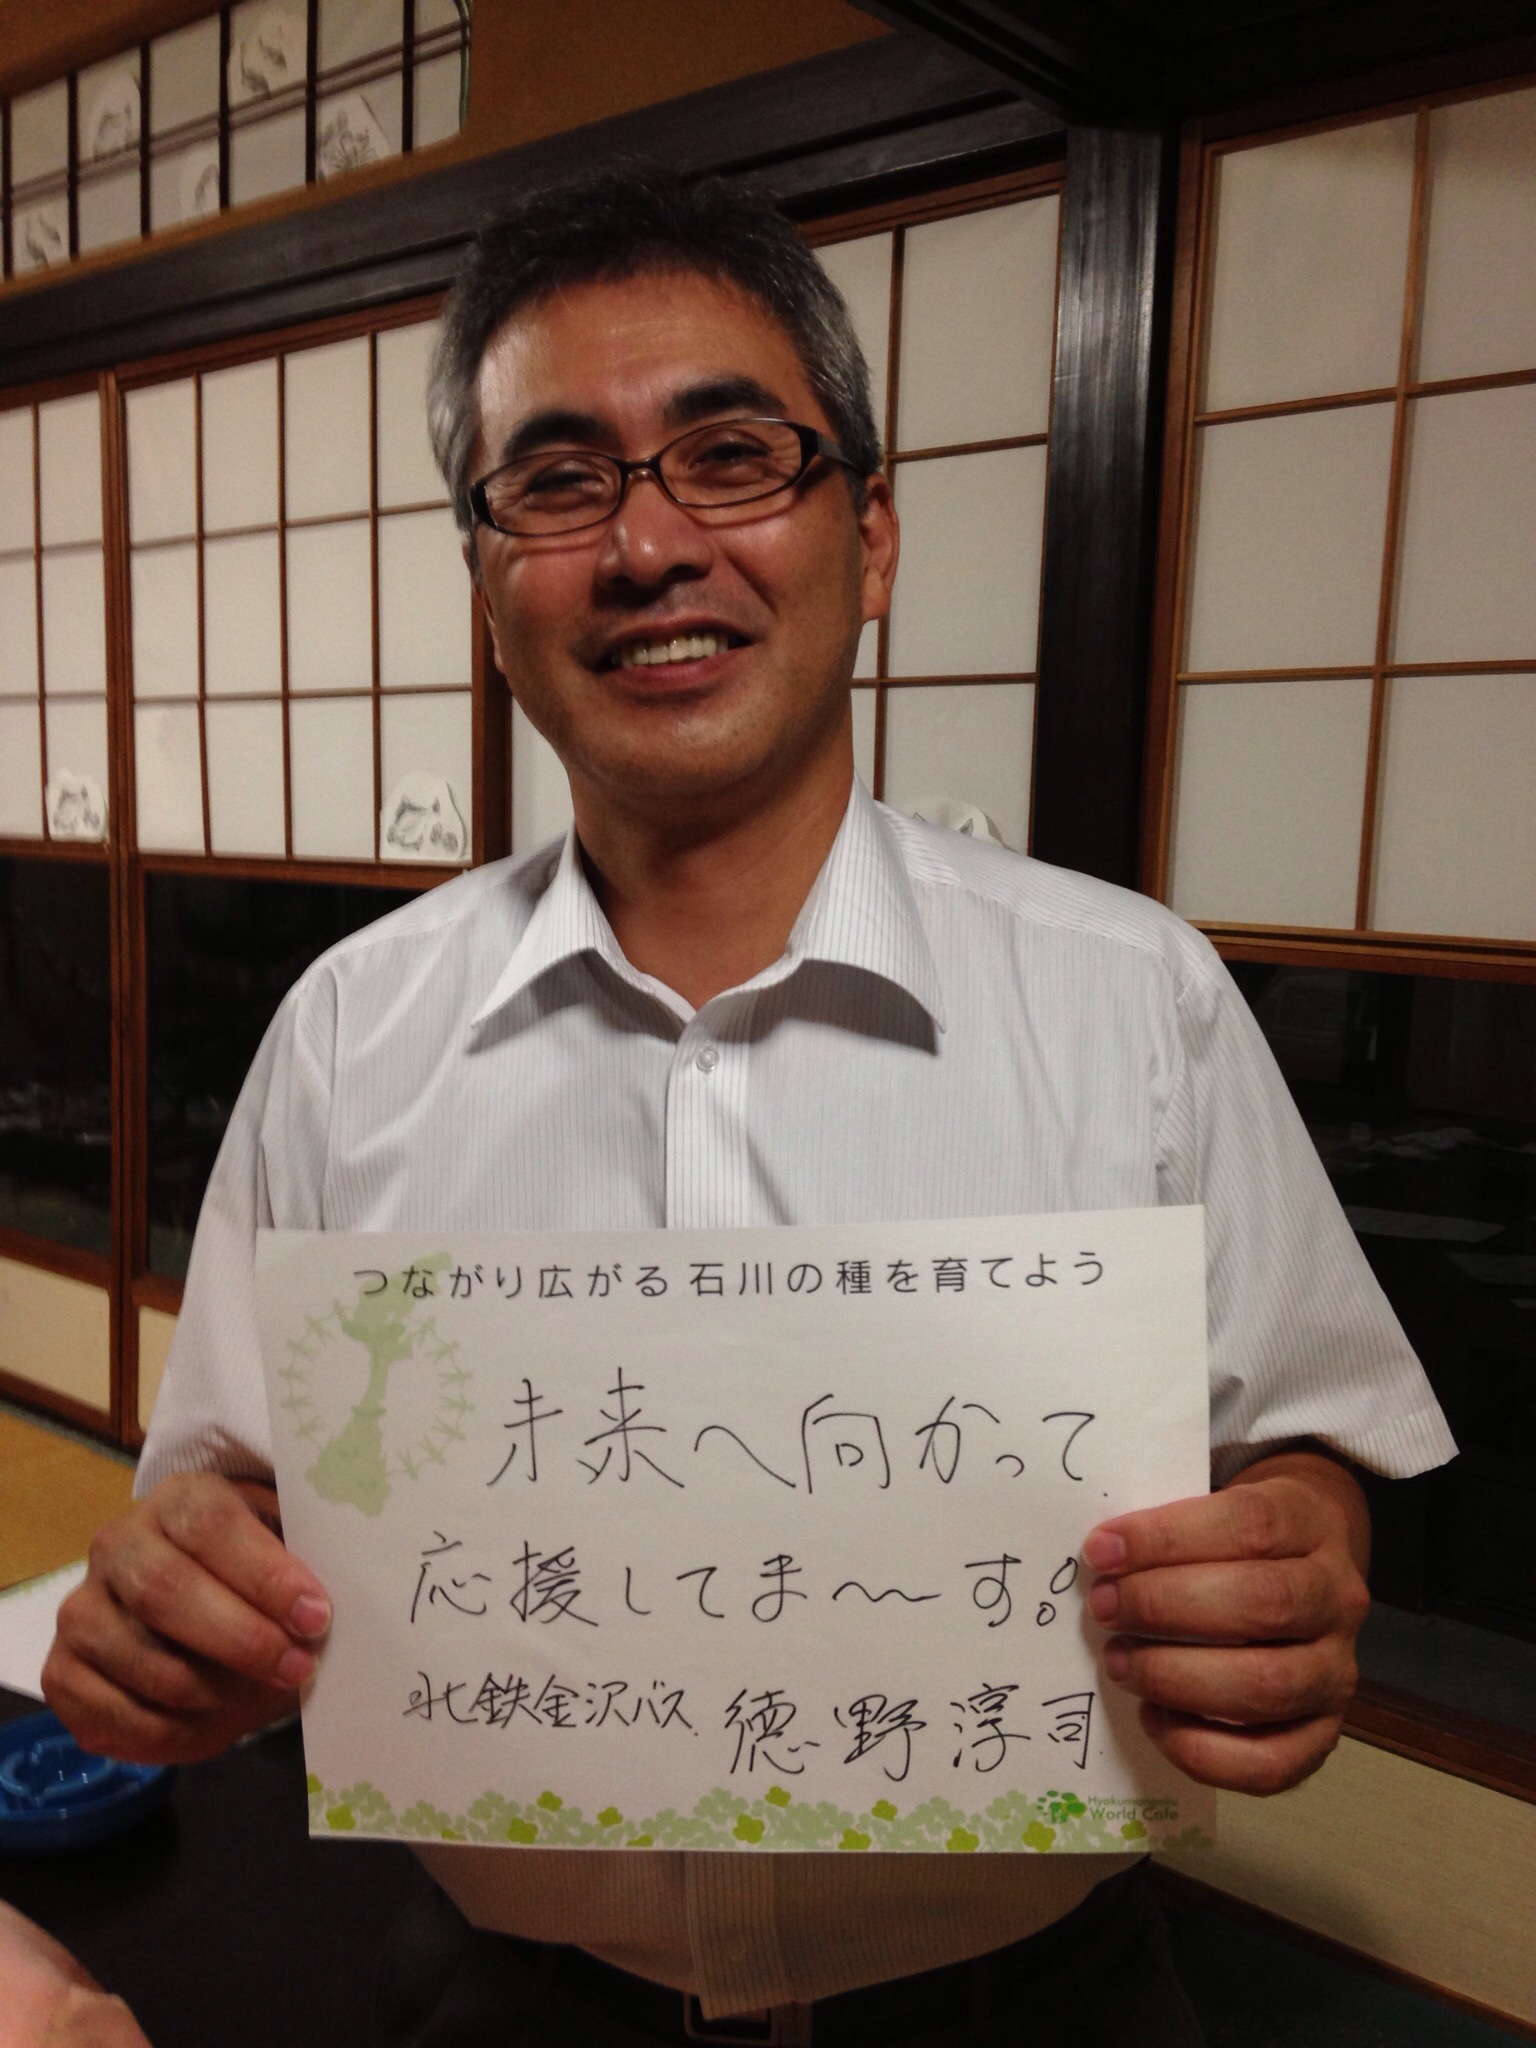 つながり広がる 石川の種を育てよう
未来へ向かって
応援してま〜〜す!
北鉄金沢バス 徳野淳司
Hyakumangoku
World Cafe